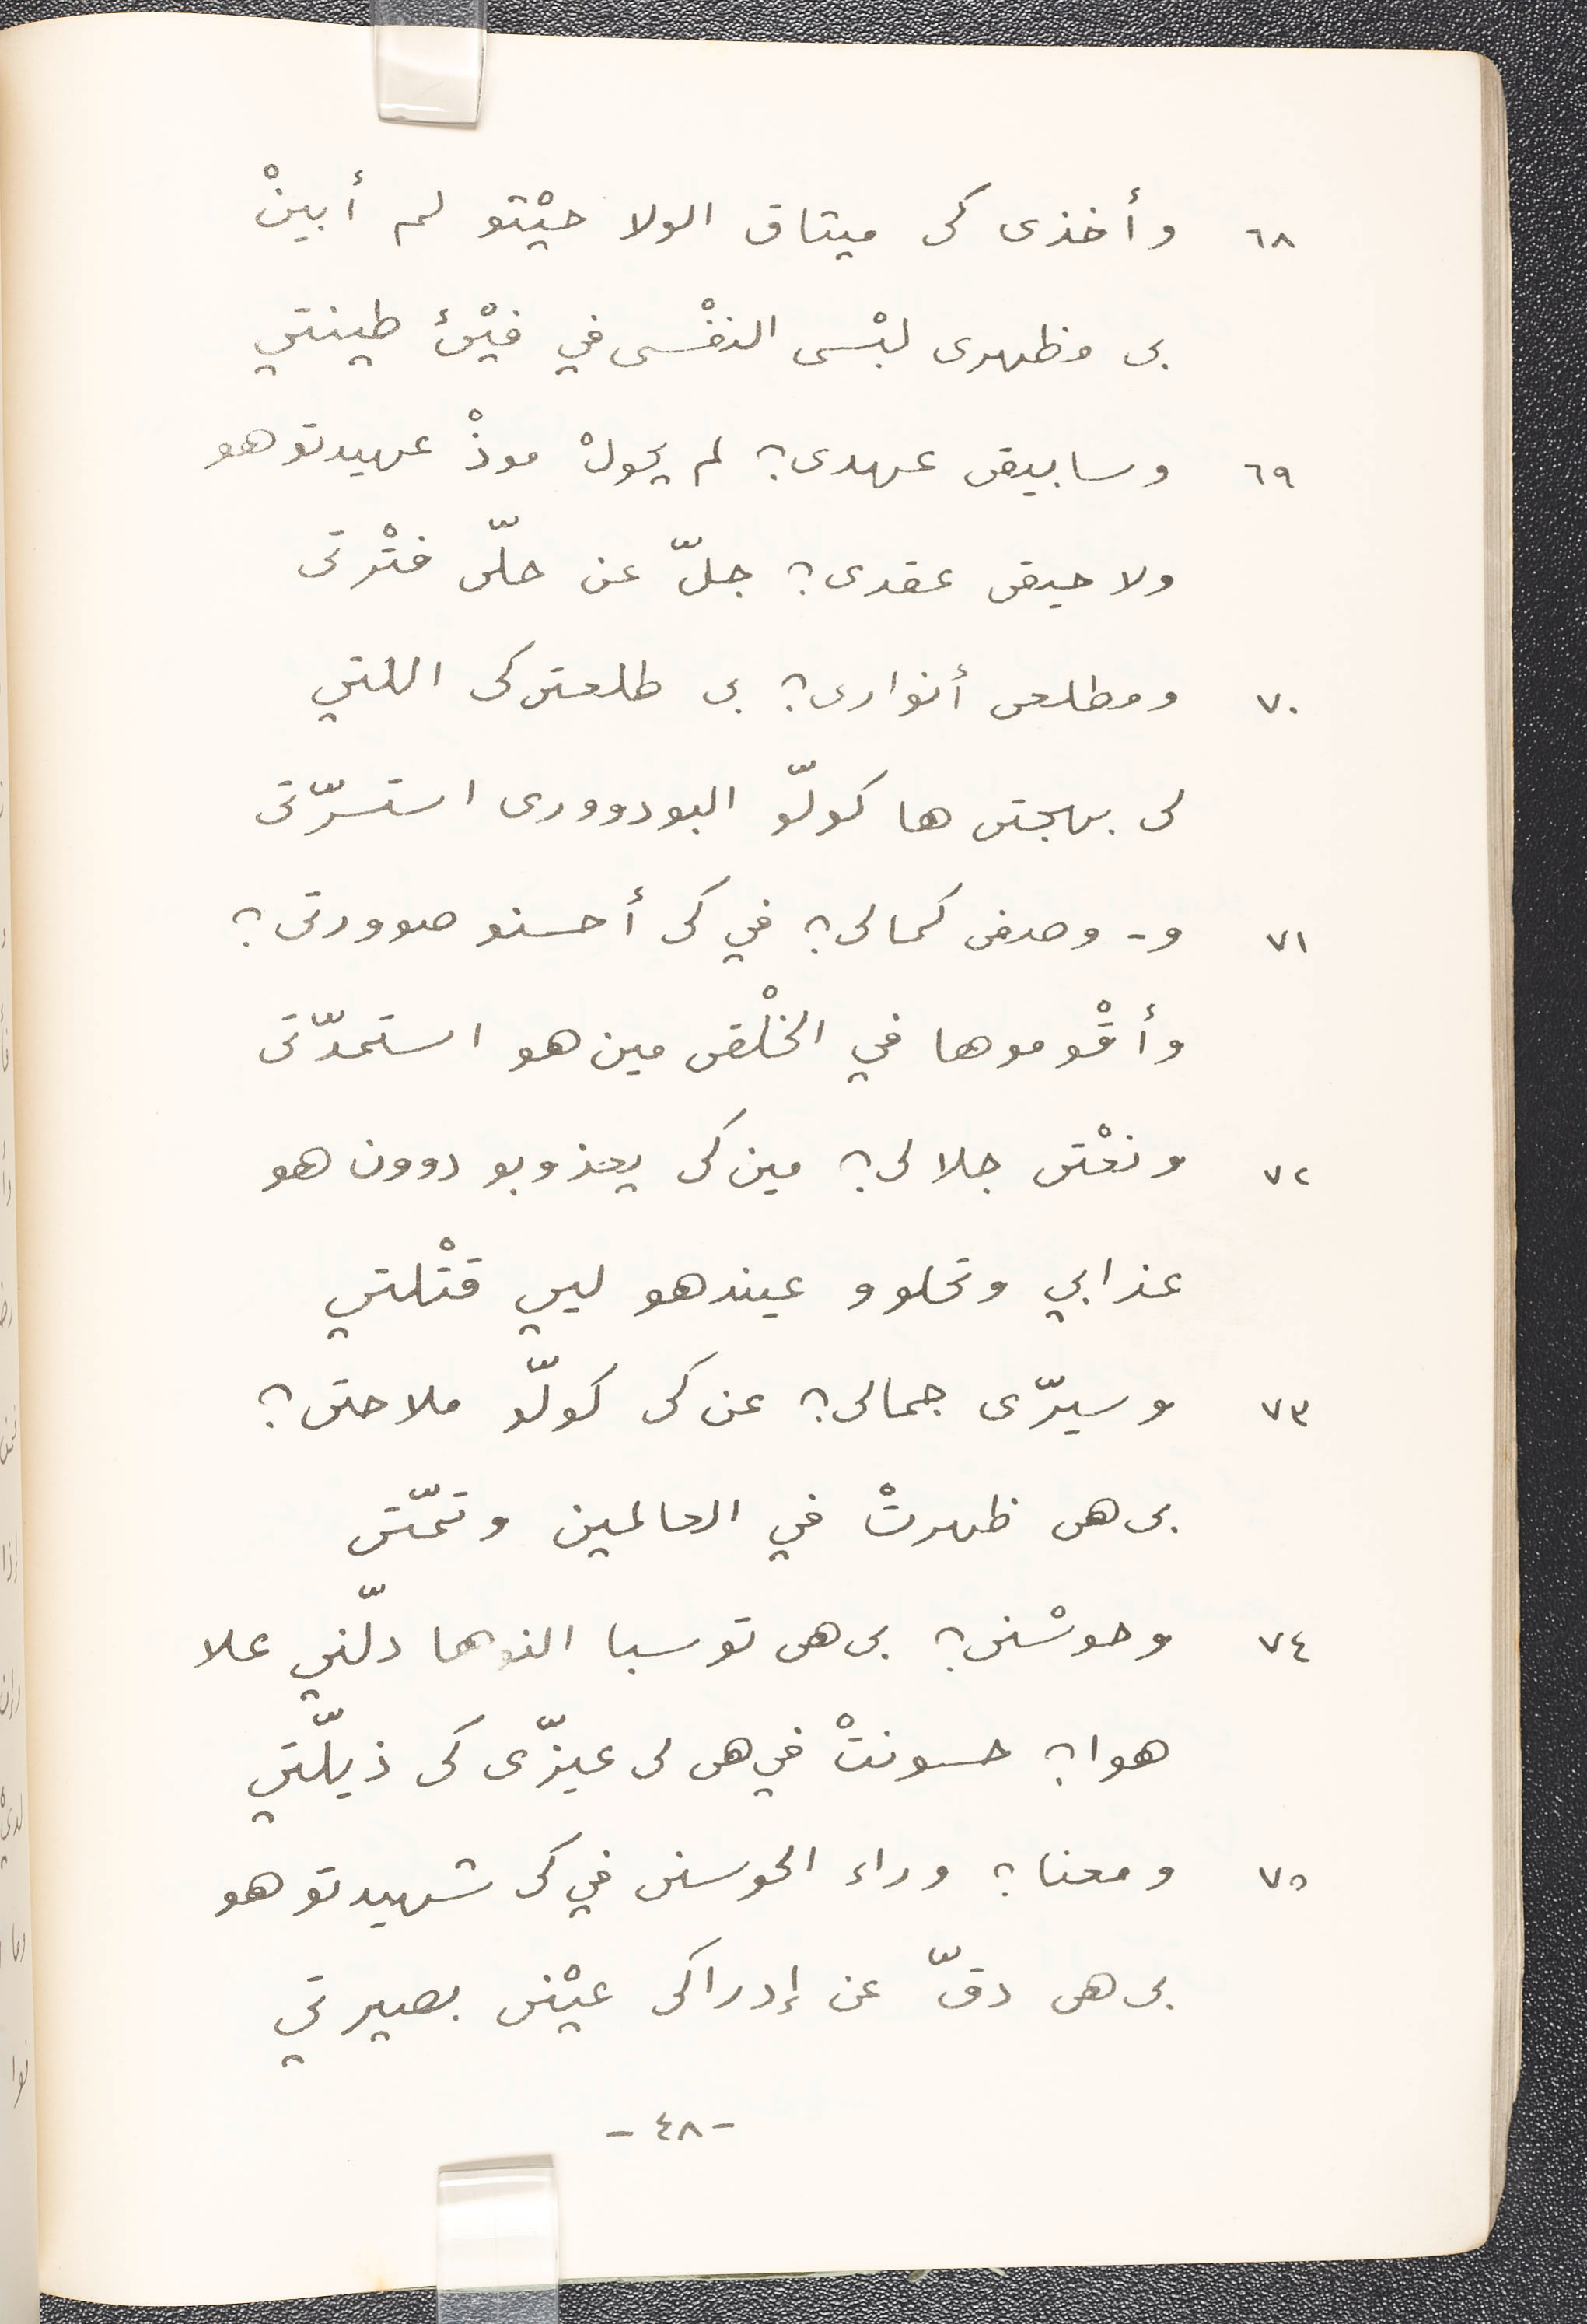 ٦٨ وأخذى كى ميتاق الولا حيْتو لم أبينْ
بى مظهرى لبْسى النفْسى في فيْئ طينتي
٦٩ وسابيقى عهدى؟ لم يحولْ موذْ عهيدتو هو
ولاحيقى عقدى؟ جلّ عن حلّى فتْرتى
٧٠ ومطلعى أنوارى؟ بى طلعتى كى اللتي
لى بهجتى ها كولّو البودوورى استسرّتى
٧١ و- وصفى كمالى؟ في كى أحسنو صوورتى؟
وأقْوموها في الخلْقى مين هو استمدّتى
٧٢ ونعْتى جلالى؟ مين كى يعذوبو دوون هو
عذابي وتحلوو عيندهو ليي قتْلتي
٧٣ وسيرّى جمالى؟ عن كى كولّو ملاحتى؟
بى هى ظهرتْ في العالمين وتمّتى
٧٤ وحوسْنى؟ بى هى توسبا النوها دلّني علا
هوا؟ حسونتْ في هى لى عيزّى كى ذيلّتي
٧٥ ومعنا؟ وراء الحوسنى في كى شهيدتو هو
بى هى دقّ عن إدراكى عيْنى بصيرتي
-٤٨-